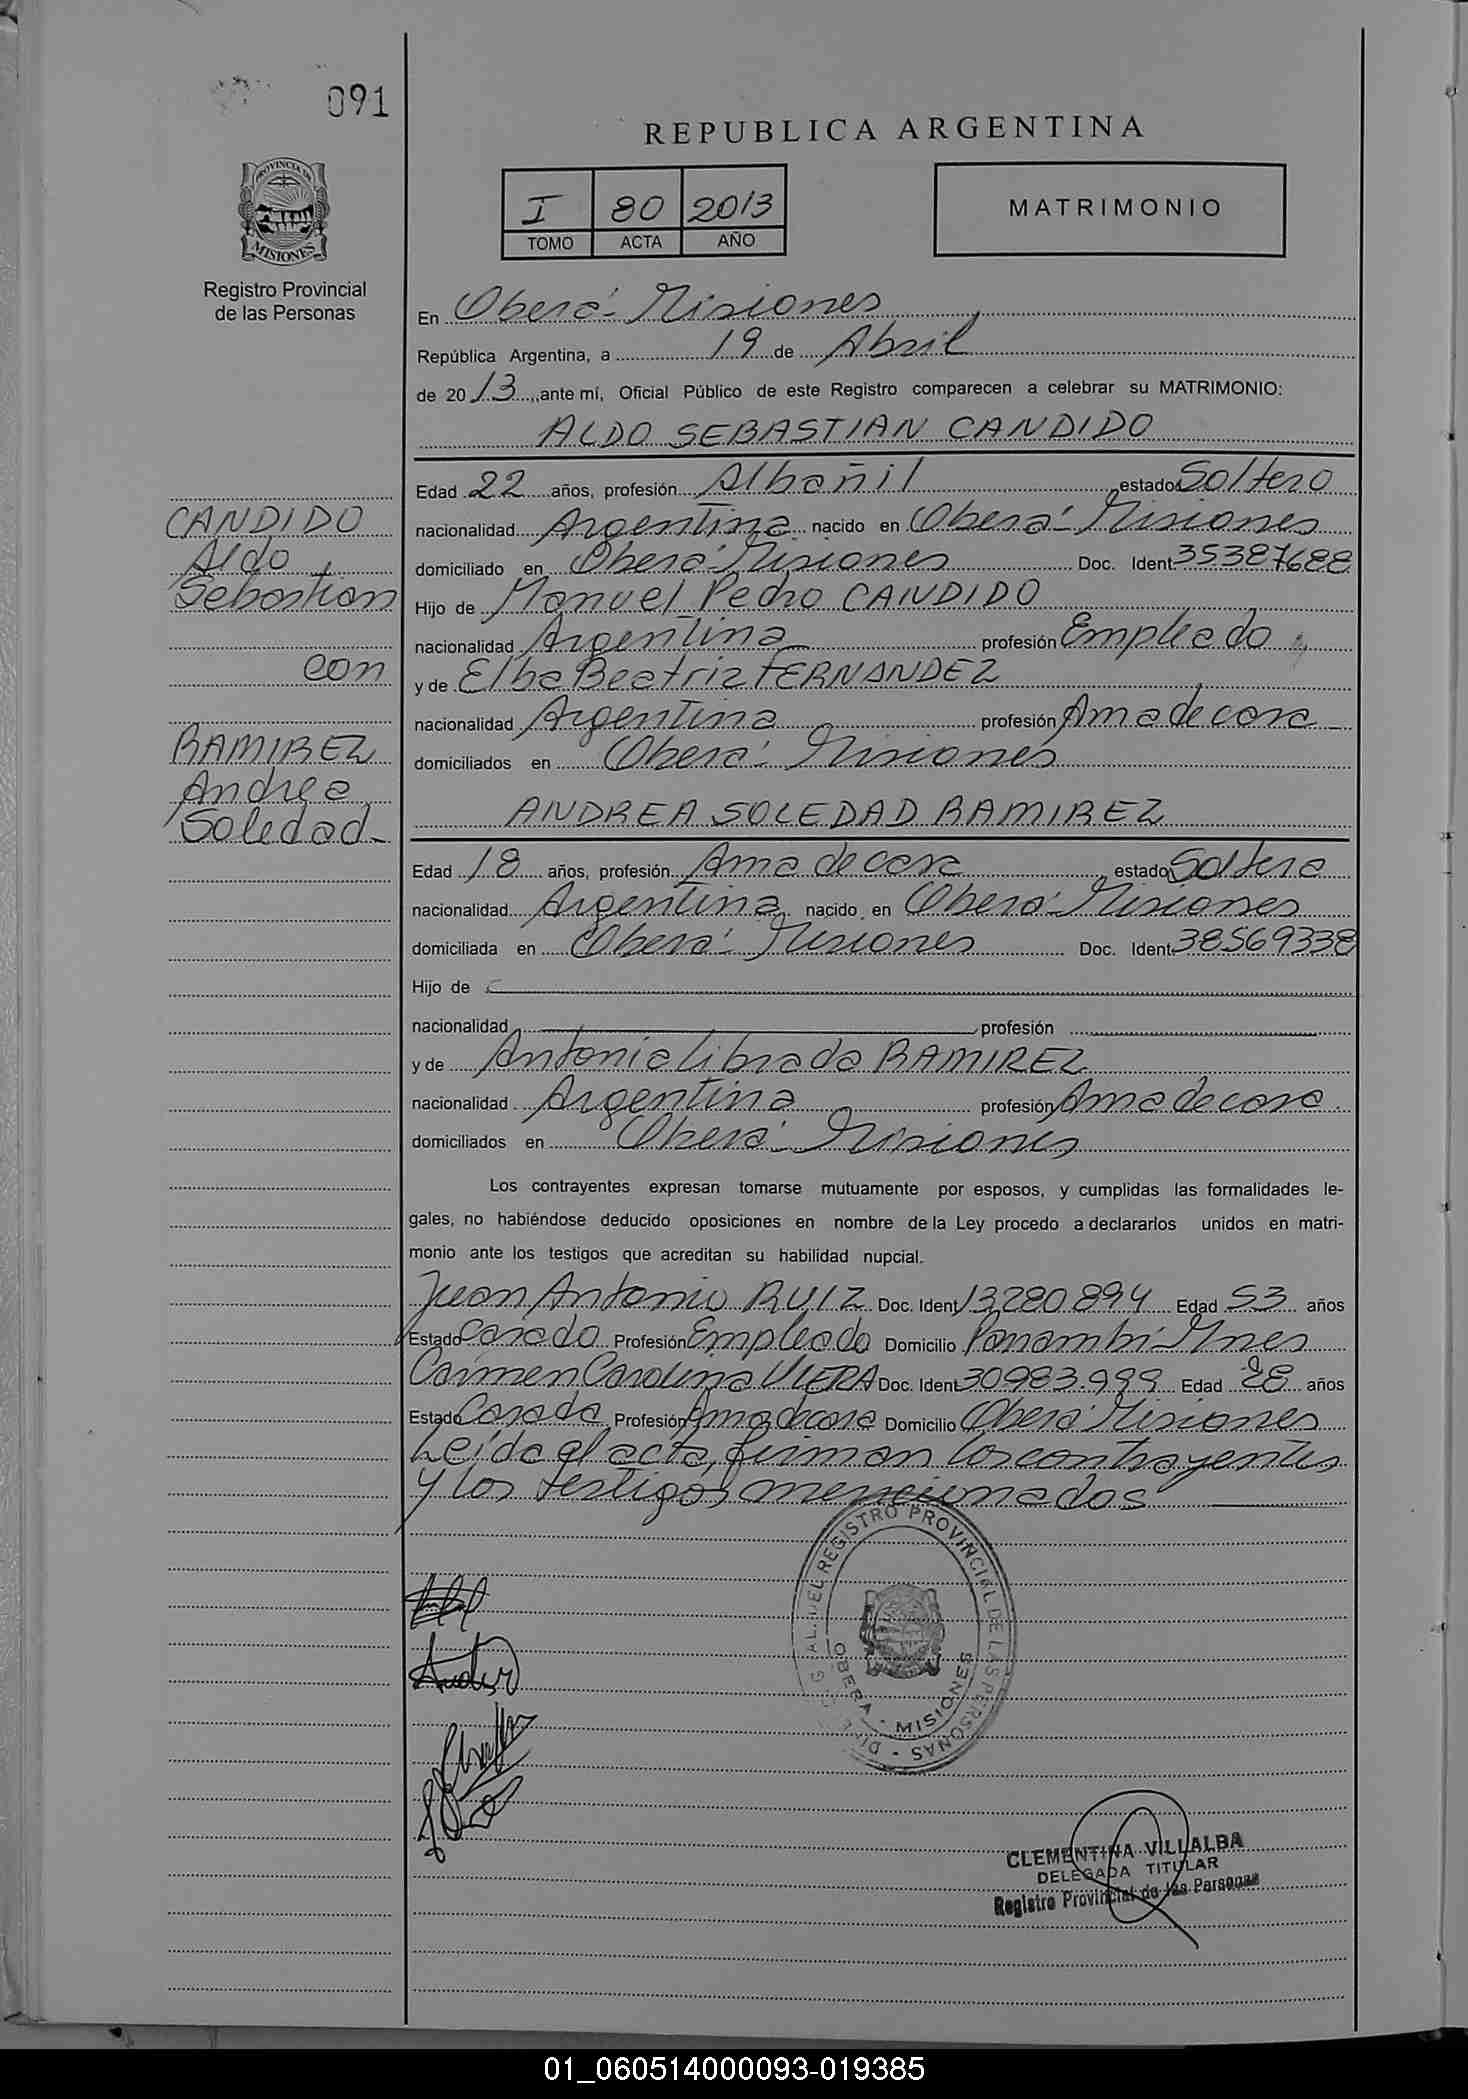 091
REPUBLICA ARGENTINA
PROVINCIA DE
MISIONES
Registro Provincial
de las Personas
I 80 2013
TOMO ACTA AÑO
MATRIMONIO
En Oberá - Misiones
República Argentina, a 19 de Abril
de 2013, ante mí, Oficial Público de este Registro comparecen a celebrar su MATRIMONIO:
ALDO SEBASTIAN CANDIDO
Edad 22 años, profesión Albañil estado Soltero
nacionalidad Argentina nacido en Oberá - Misiones
domiciliado en Oberá - Misiones Doc. Ident 35387688
Hijo de Manuel Pedro CANDIDO
nacionalidad Argentina profesión Empleado
y de Elba Beatriz FERNANDEZ
nacionalidad Argentina profesión Ama de casa
domiciliados en Oberá - Misiones
CANDIDO
Aldo
Sebastian
con
RAMIREZ
Andrea
Soledad-
ANDREA SOLEDAD RAMIREZ
Edad 18 años, profesión Ama de casa estado Soltera
nacionalidad Argentina nacido en Oberá - Misiones
domiciliada en Oberá - Misiones Doc. Ident 38569338
Hijo de
nacionalidad profesión
y de Antonia Librada RAMIREZ
nacionalidad Argentina profesión Ama de casa
domiciliados en Oberá - Misiones
Los contrayentes expresan tomarse mutuamente por esposos, y cumplidas las formalidades le-
gales, no habiéndose deducido oposiciones en nombre de la Ley procedo a declararlos unidos en matri-
monio ante los testigos que acreditan su habilidad nupcial.
Juan Antonio RUIZ Doc. Ident 13280894 Edad 53 años
Estado Casado Profesión Empleado Domicilio Panambí - Mnes
Carmen Carolina VIERA Doc. Ident 30983.999 Edad 28 años
Estado Casada Profesión Ama de casa Domicilio Oberá - Misiones
Leída el acta, firman los contrayentes
y los testigos mencionados
REGISTRO PROVINCIAL DE LAS PERSONAS
OBERA - MISIONES
CLEMENTINA VILLALBA
DELEGADA TITULAR
Registro Provincial de las Personas
01_060514000093-019385